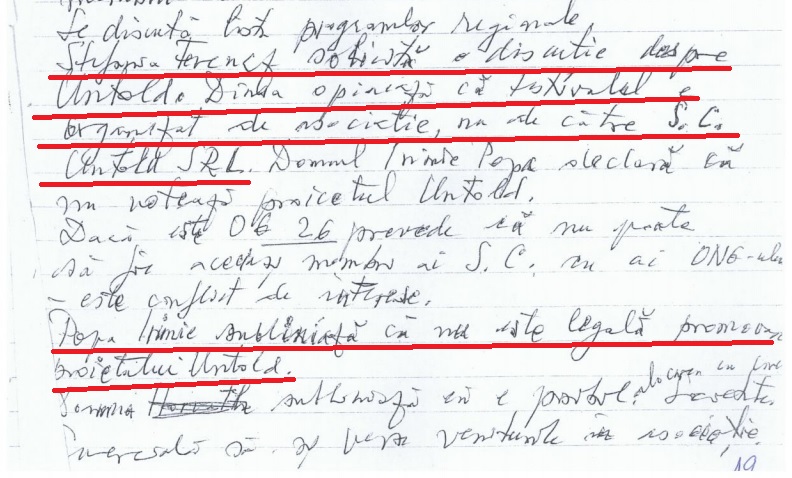 Se discută lista programelor regionale,
Ștefania Ferencz solicită o discuție despre
Untold. Dânsa opinează că festivalul e
organizat de asociație, nu de către S.C.
Untold SRL. Domnul Irinie Popa declară că
nu votează proiectul Untold.
Dacă este OG 26 prevede că nu poate
să fie aceiași membrii ai S.C. cu ai ONG-ului
– este conflict de interese.
Popa Irinie subliniază că nu este legală promovarea
proiectului Untold.
subliniază că e posibil.
să se verse veniturile în asociație.
19